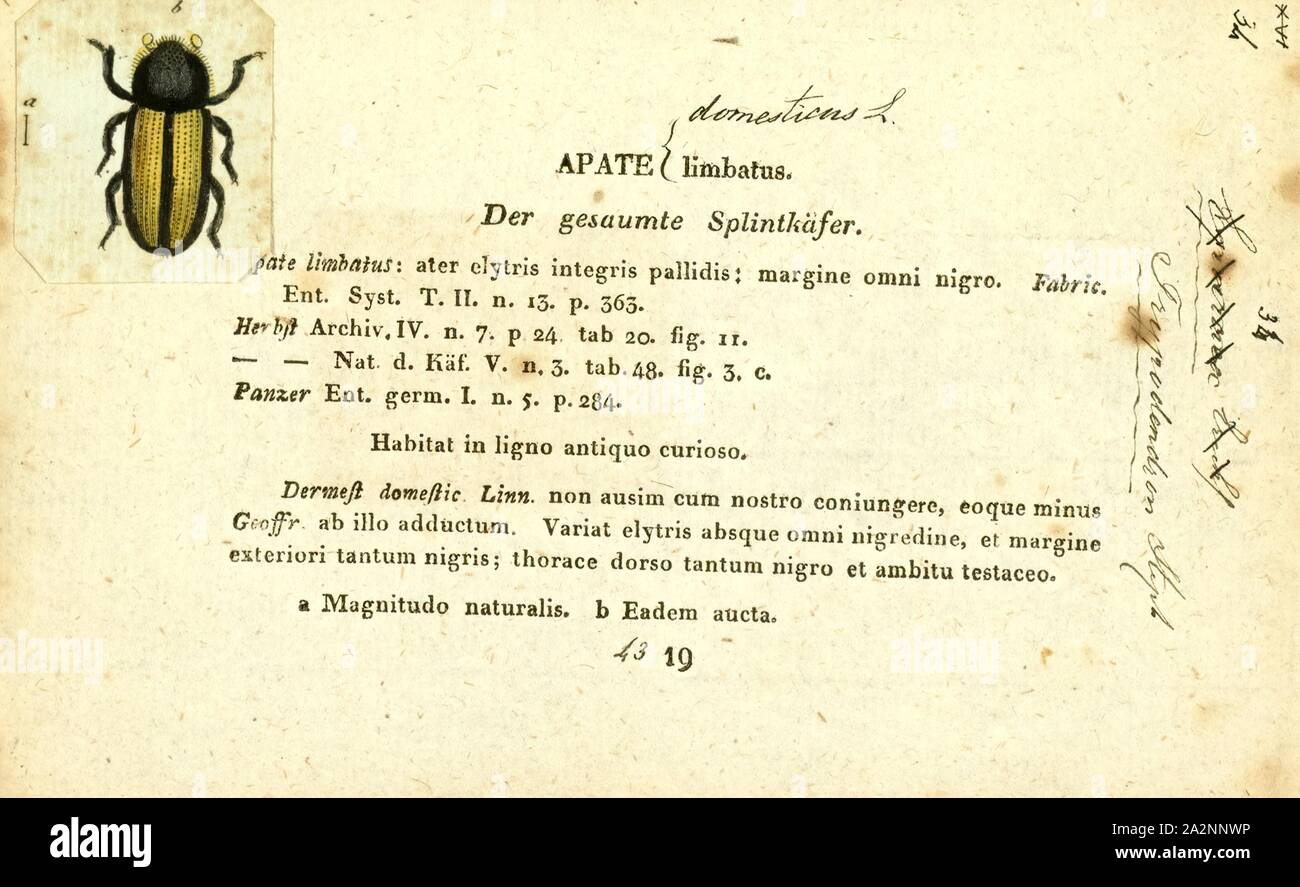 b
a
domesticus L.
APATE { limbatus.
Der gesaumte Splintkäfer.
pate limbatus: ater elytris integris pallidis; margine omni nigro. Fabric.
Ent. Syst. T. II. n. 13. p. 363.
Herbſt Archiv. IV. n. 7. p 24. tab 20. fig. 11.
— — Nat. d. Käf. V. n. 3. tab. 48. fig. 3. c.
Panzer Ent. germ. I. n. 5. p. 284.
Habitat in ligno antiquo curioso.
Dermeſt domeſtic. Linn. non ausim cum nostro coniungere, eoque minus
Geoffr. ab illo adductum. Variat elytris absque omni nigredine, et margine
exteriori tantum nigris; thorace dorso tantum nigro et ambitu testaceo.
a Magnitudo naturalis. b Eadem aucta.
43 19
Trypodendron Steph
34
XVI
34
alamy
alamy
alamy
Image ID: 2A2NNWP
www.alamy.com